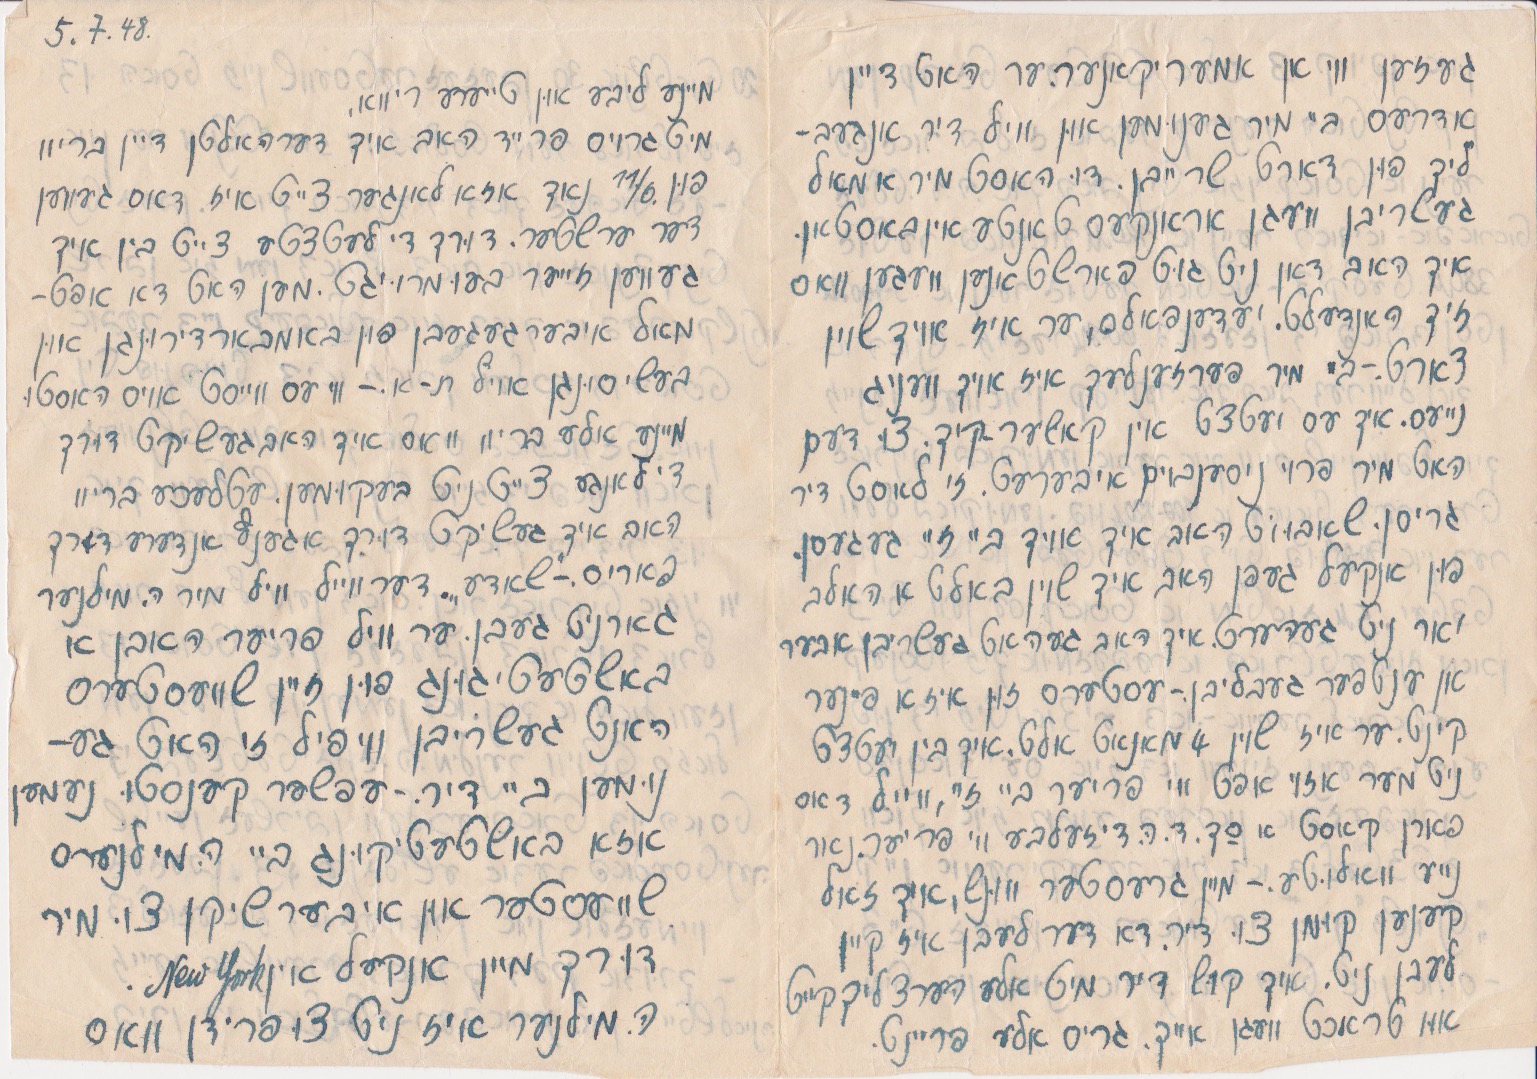 5.7.48.
מיינע ליבע און טייערע ריווא,
מיט גרויס פרייד האב איך דערהאלטן דיין בריוו
פון 11/5. נאך אזא לאנגער צייט איז דאס געווען
דער ערשטער. דורך די לעטצטע צייט בין איך
געווען זייער בעומרויגט. מען האט דא אפט-
מאל איבערגעגעבן פון באמבארדירונגן און
בעשיסונגן אויף ת-א. - ווי עס ווייסט אויס האסטו
מיינע אלע בריוו וואס איך האב געשיקט דורך
די לאנגע צייט ניט בעקומען. עטלעכע בריוו
האב איך געשיקט דורך אגענץ אנדערע דורך
פאריס. - שאדע... דערווייל וויל מיר ה. מילנער
גארניט געבן. ער וויל פריער האבן א
באשטעטיגונג פון זיין שוועסטערס
האנט געשריבן וויפיל זי האט גע-
נומען ביי דיר. - עפשער קענסטו נעמען
אזא באשטעטיקונג ביי ה. מילנערס
שוועסטער און איבערשיקן צו מיר
דורך מיין אנקעל אין New York.
ה. מילנער איז ניט צופרידן וואס
געזען ווי אן אמעריקאנער. ער האט דיין
אדרעס ביי מיר גענומען און וויל דיר אנגעב-
ליך פון דארט שרייבן. דו האסט מיר אמאל
געשריבן וועגן אראנקעס טאנטע אין באסטאן.
איך האב דאן ניט גוט פארשטאנען וועגען וואס
זיך האנדעלט. יעדענפאלס, ער איז אויך שוין
דארט. - ביי מיר פערזענליך איז אויך וועניג
נייעס. איך עס יעטצט אין קאשער-קיך. צו דעם
האט מיר פרוי ניסענבוים איבערעט. זי לאסט דיר
גריסן. שאבויט האב איך אויך ביי זיי געגעסן.
פון אנקעל געפן האב איך שוין באלט א האלב
יאר ניט געהערט. איך האב געהאט געשריבן אבער
אן ענטפער געבליבן. - עסטערס זון איז א פיינער
קינט. ער איז שוין 4 מאנאט אלט. איך בין יעטצט
ניט מער אזוי אפט ווי פריער ביי זיי, ווייל דאס
פארן קאסט א סך. ד. ה. דיזעלבע ווי פריער. נאור
נייע וואלוטע. - מיין גרעסטער ווונש, איך זאל
קענען קומן צו דיר. דא דער לעבן איז קיין
לעבן ניט. איך קוש דיר מיט אלע הערצליכקייט
און טראכט וועגן אייך. גריס אלע פריינט.